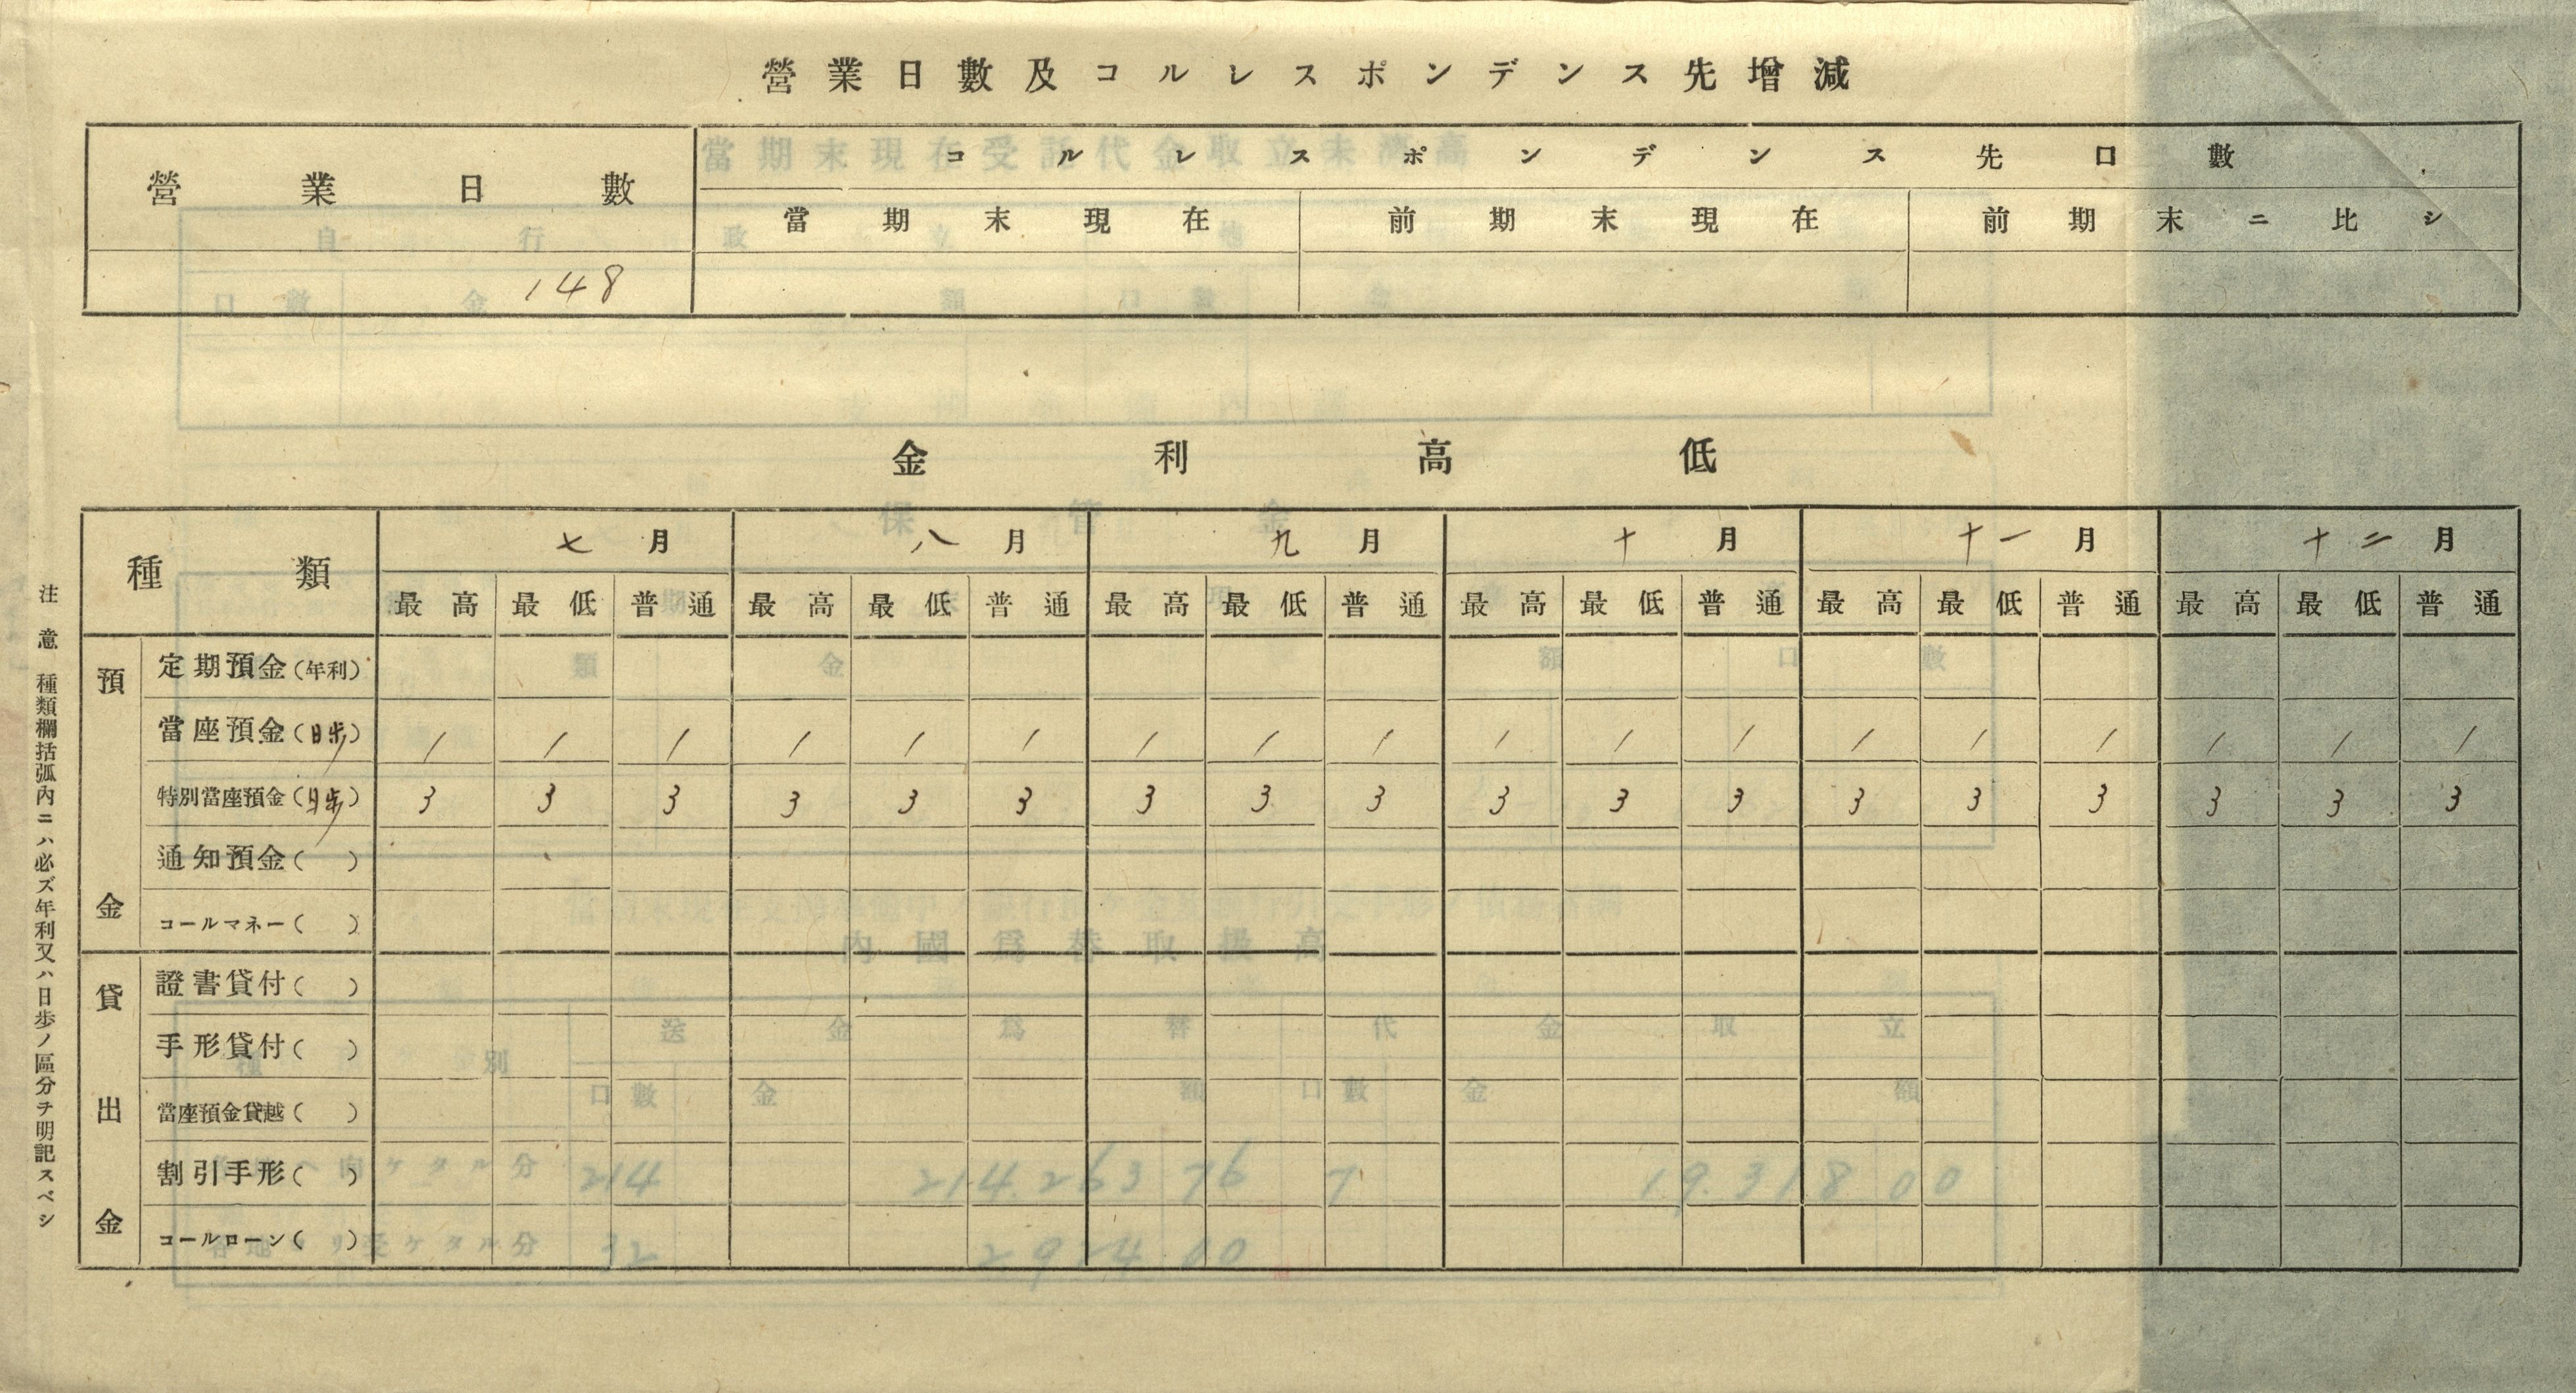 營業日數及コルレスポンデンス先增減
營業日數 コルレスポンデンス先口數
當期末現在 前期末現在 前期末ニ比シ
148
金利高低
種類 七月 八月 九月 十月 十一月 十二月
最高 最低 普通 最高 最低 普通 最高 最低 普通 最高 最低 普通 最高 最低 普通 最高 最低 普通
預金
定期預金(年利)
當座預金(日歩) 1 1 1 1 1 1 1 1 1 1 1 1 1 1 1 1 1 1
特別當座預金(日歩) 3 3 3 3 3 3 3 3 3 3 3 3 3 3 3 3 3 3
通知預金( )
コールマネー( )
貸出金
證書貸付( )
手形貸付( )
當座預金貸越( )
割引手形( )
コールローン( )
注意 種類欄括弧內ニハ必ズ年利又ハ日歩ノ區分ヲ明記スベシ